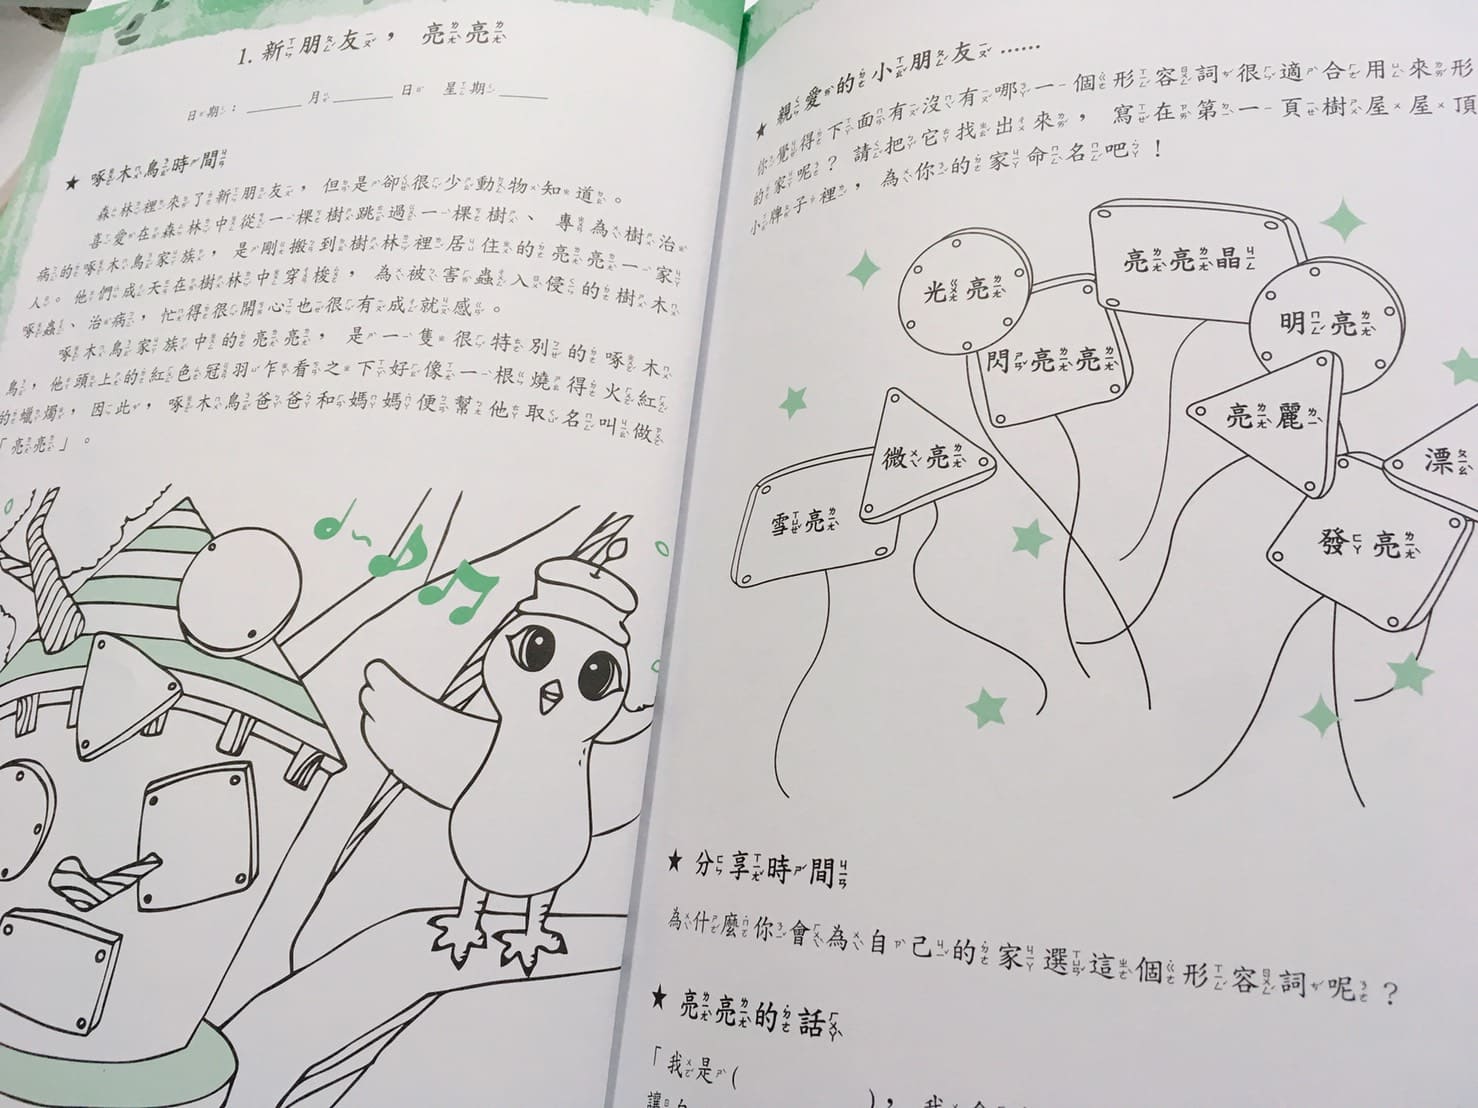 1. 新朋友，亮亮
日期：　月　日　星期
★ 啄木鳥時間
森林裡來了新朋友，但是卻很少動物知道。
喜愛在森林中從一棵樹跳過一棵樹、專為樹治
病的啄木鳥家族，是剛搬到樹林裡居住的亮亮一家
人。他們成天在樹林中穿梭，為被害蟲入侵的樹木
啄蟲、治病，忙得很開心也很有成就感。
啄木鳥家族中的亮亮，是一隻很特別的啄木
鳥，他頭上的紅色冠羽乍看之下好像一根燒得火紅
的蠟燭，因此，啄木鳥爸爸和媽媽便幫他取名叫做
「亮亮」。
★ 親愛的小朋友……
你覺得下面有沒有哪一個形容詞很適合用來形
的家呢？請把它找出來，寫在第一頁樹屋屋頂
小牌子裡，為你的家命名吧！
亮亮晶
光亮
明亮
閃亮亮
亮麗
漂
微亮
雪亮
發亮
★ 分享時間
為什麼你會為自己的家選這個形容詞呢？
★ 亮亮的話
「我是(
讓
)，我